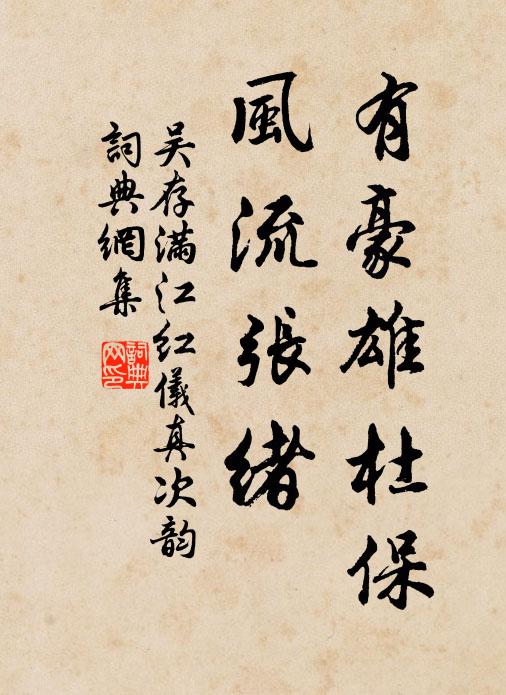 有豪雄杜保
風流張緒
吴存满江红儀真次韵
詞典網集
詞典
网印